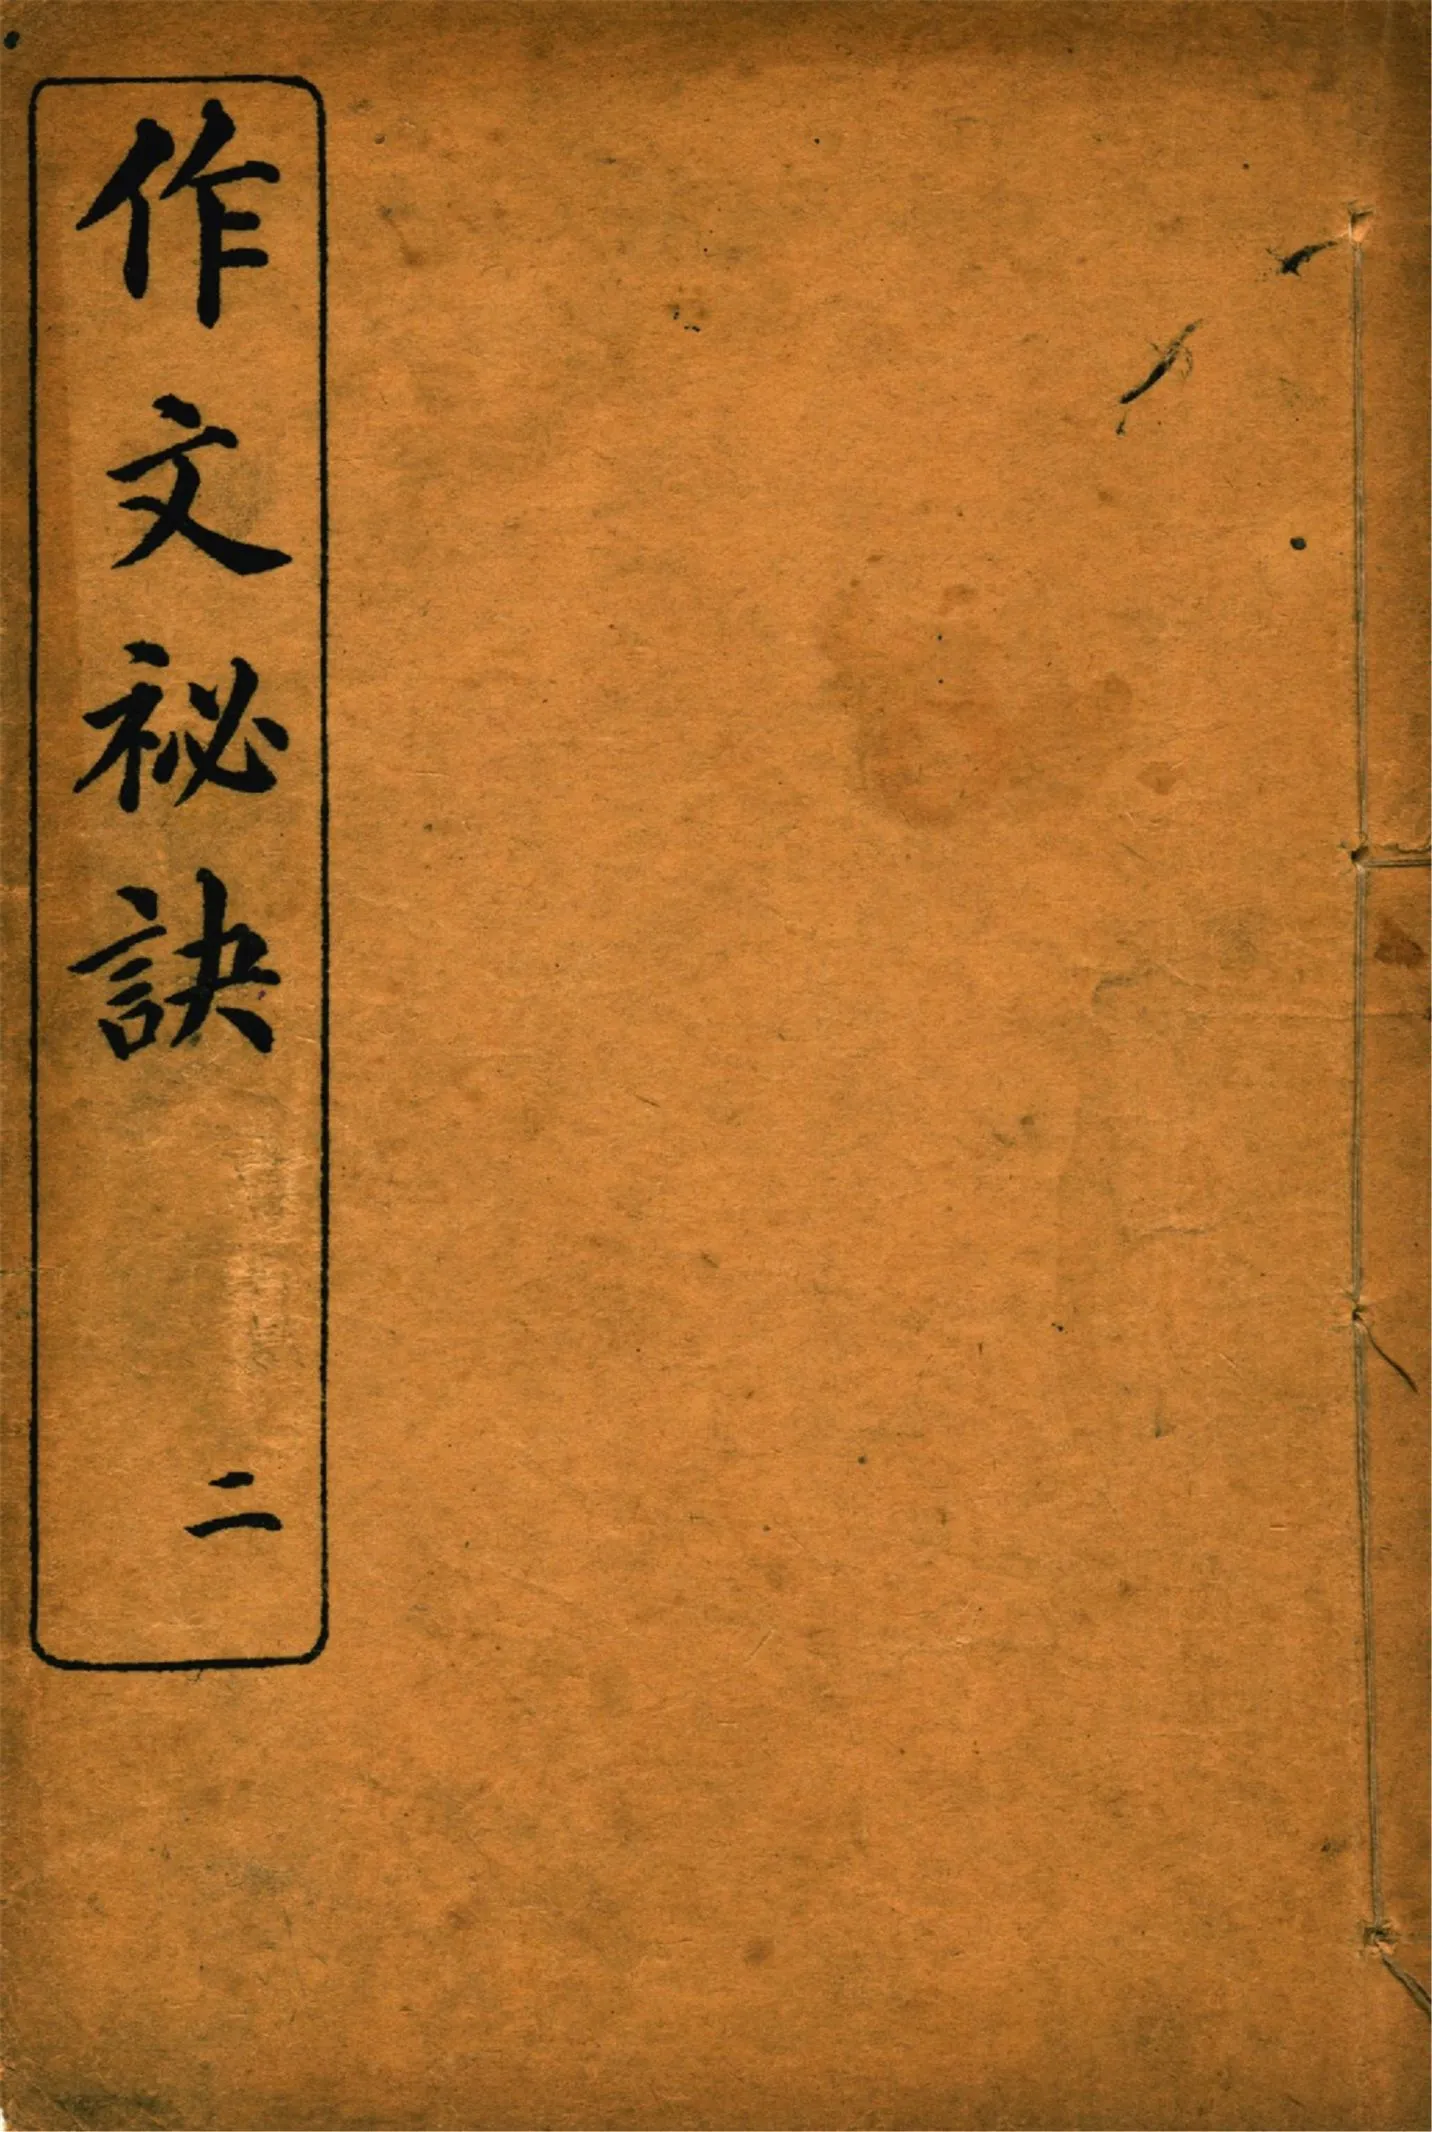 作文祕訣
二